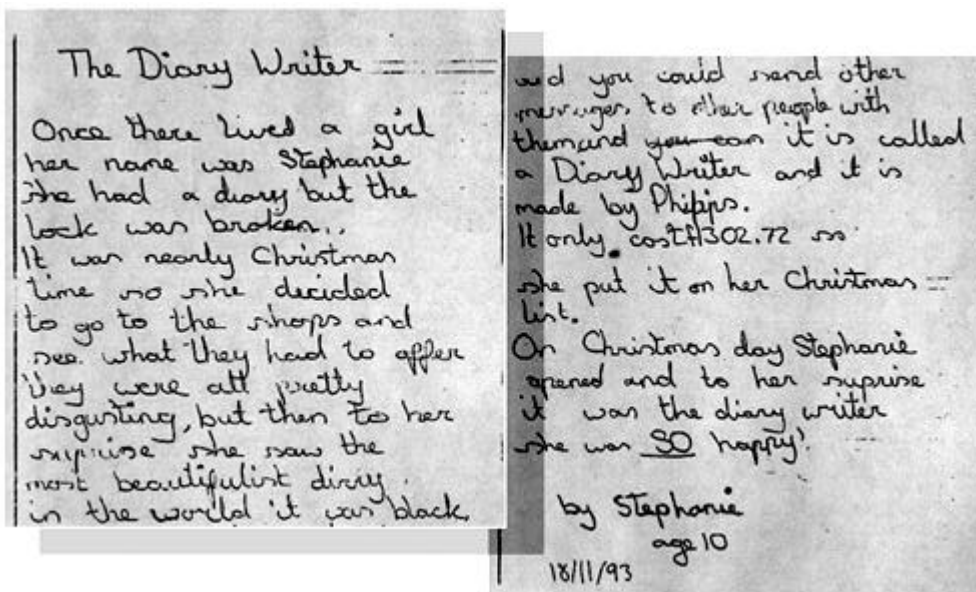 The Diary Writer
Once there lived a girl
her name was Stephanie
she had a diary but the
lock was broken..
It was nearly Christmas
time so she decided
to go to the shops and
see what they had to offer
they were all pretty
disgusting, but then to her
suprise she saw the
most beautifulist diriy
in the world it was black
and you could send other
messages to other people with
themand you can it is called
a Diary Writer and it is
made by Philips.
It only cost 302.72 so
she put it on her Christmas
list.
On Christmas day Stephanie
opened and to her suprise
it was the diary writer
she was SO happy!
by Stephanie
age 10
18/11/93